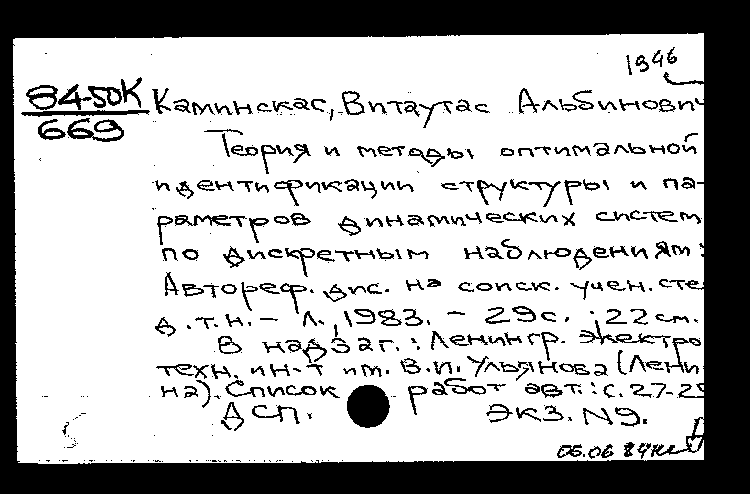 1946
84-50К
669
Каминскас, Витаутас Альбинович
Теория и методы оптимальной
идентификации структуры и па-
раметров динамических систем
по дискретным наблюдениям:
Автореф. дис. на соиск. учен. сте
д.т.н. - Л., 1983. - 29с. ; 22см.
В надзаг.: Ленингр. электро
техн. ин-т им. В.И. Ульянова (Лени
на). Список работ авт.: с. 27-29
ДСП. Экз. N9.
5